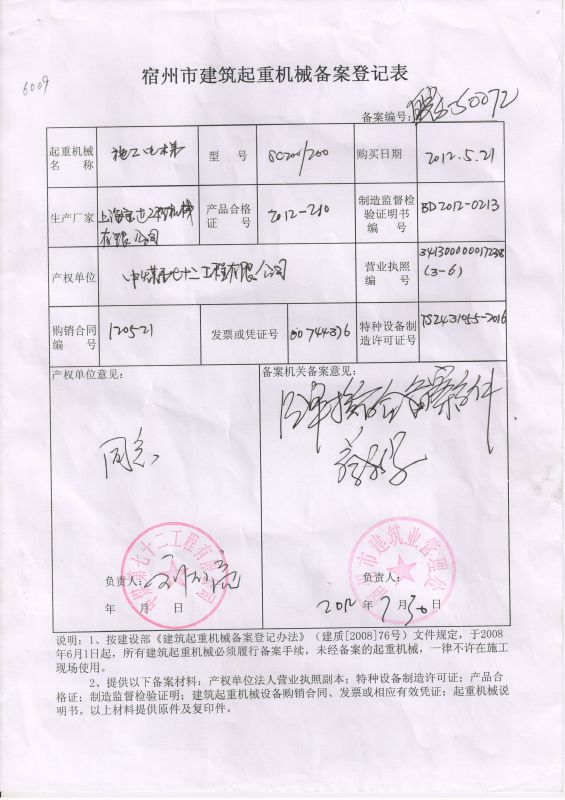 6009
宿州市建筑起重机械备案登记表
备案编号: S0072
起重机械名称 施工电梯 型号 SC200/200 购买日期 2012.5.21
生产厂家 上海宝达工程机械有限公司 产品合格证号 2012-210 制造监督检验证明书编号 BD2012-0213
产权单位 中煤第七十二工程有限公司 营业执照编号 341300000017238 (3-6)
购销合同编号 120521 发票或凭证号 00744376 特种设备制造许可证号 TS2431955-2016
产权单位意见: 备案机关备案意见:
同意 符合备案条件
中煤第七十二工程有限公司 宿州市建筑业管理处
负责人: 负责人:
年 月 日 2012年7月30日
说明:1、按建设部《建筑起重机械备案登记办法》(建质[2008]76号)文件规定,于2008
年6月1日起,所有建筑起重机械必须履行备案手续,未经备案的起重机械,一律不许在施工
现场使用。
2、提供以下备案材料:产权单位法人营业执照副本;特种设备制造许可证;产品合
格证;制造监督检验证明;建筑起重机械设备购销合同、发票或相应有效凭证;起重机械说
明书。以上材料提供原件及复印件。